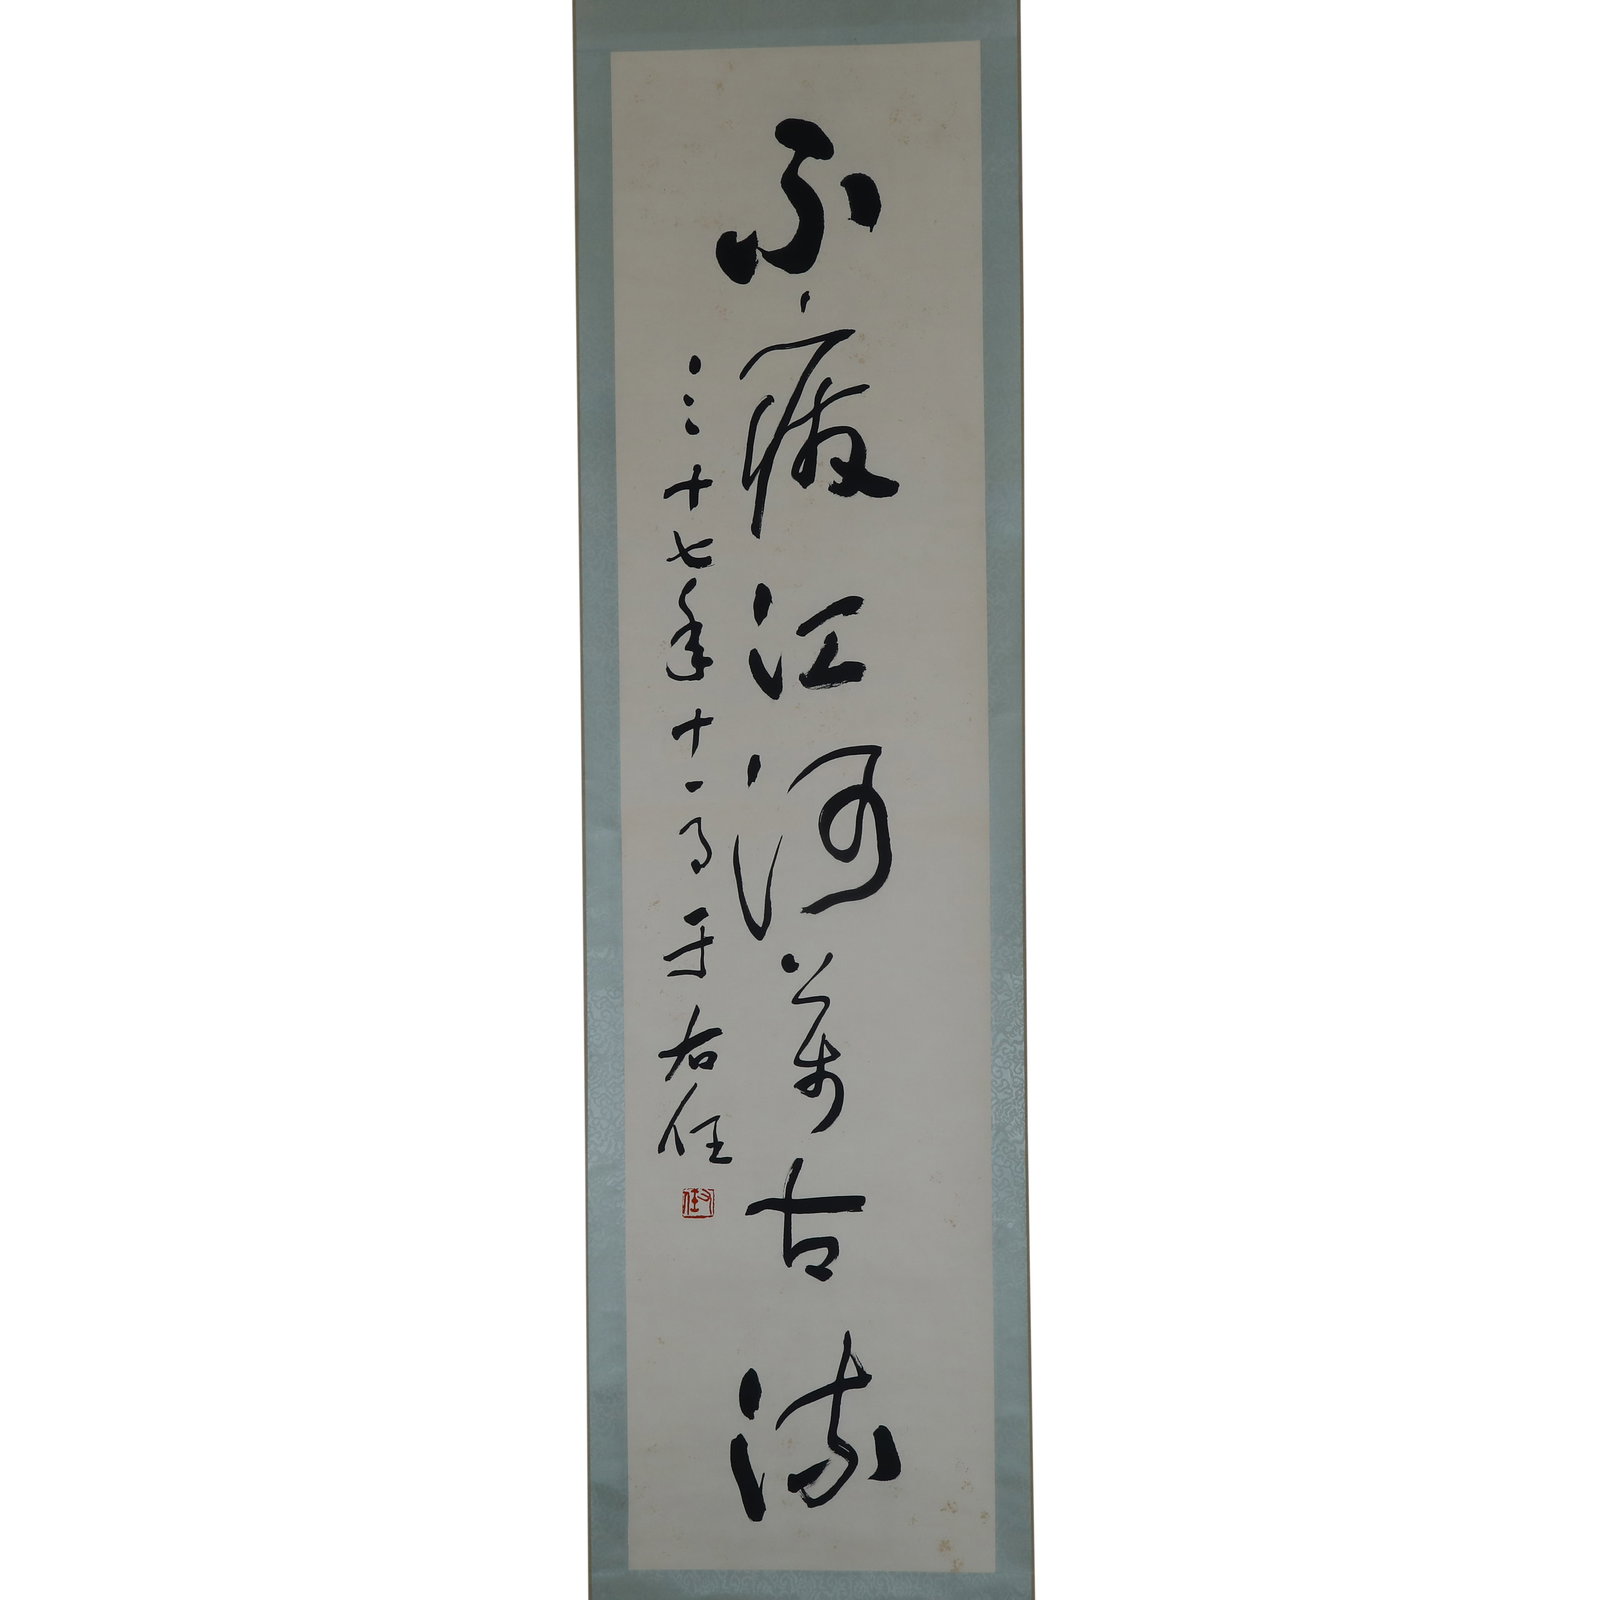 不廢江河萬古流
三十七年十一月于右任